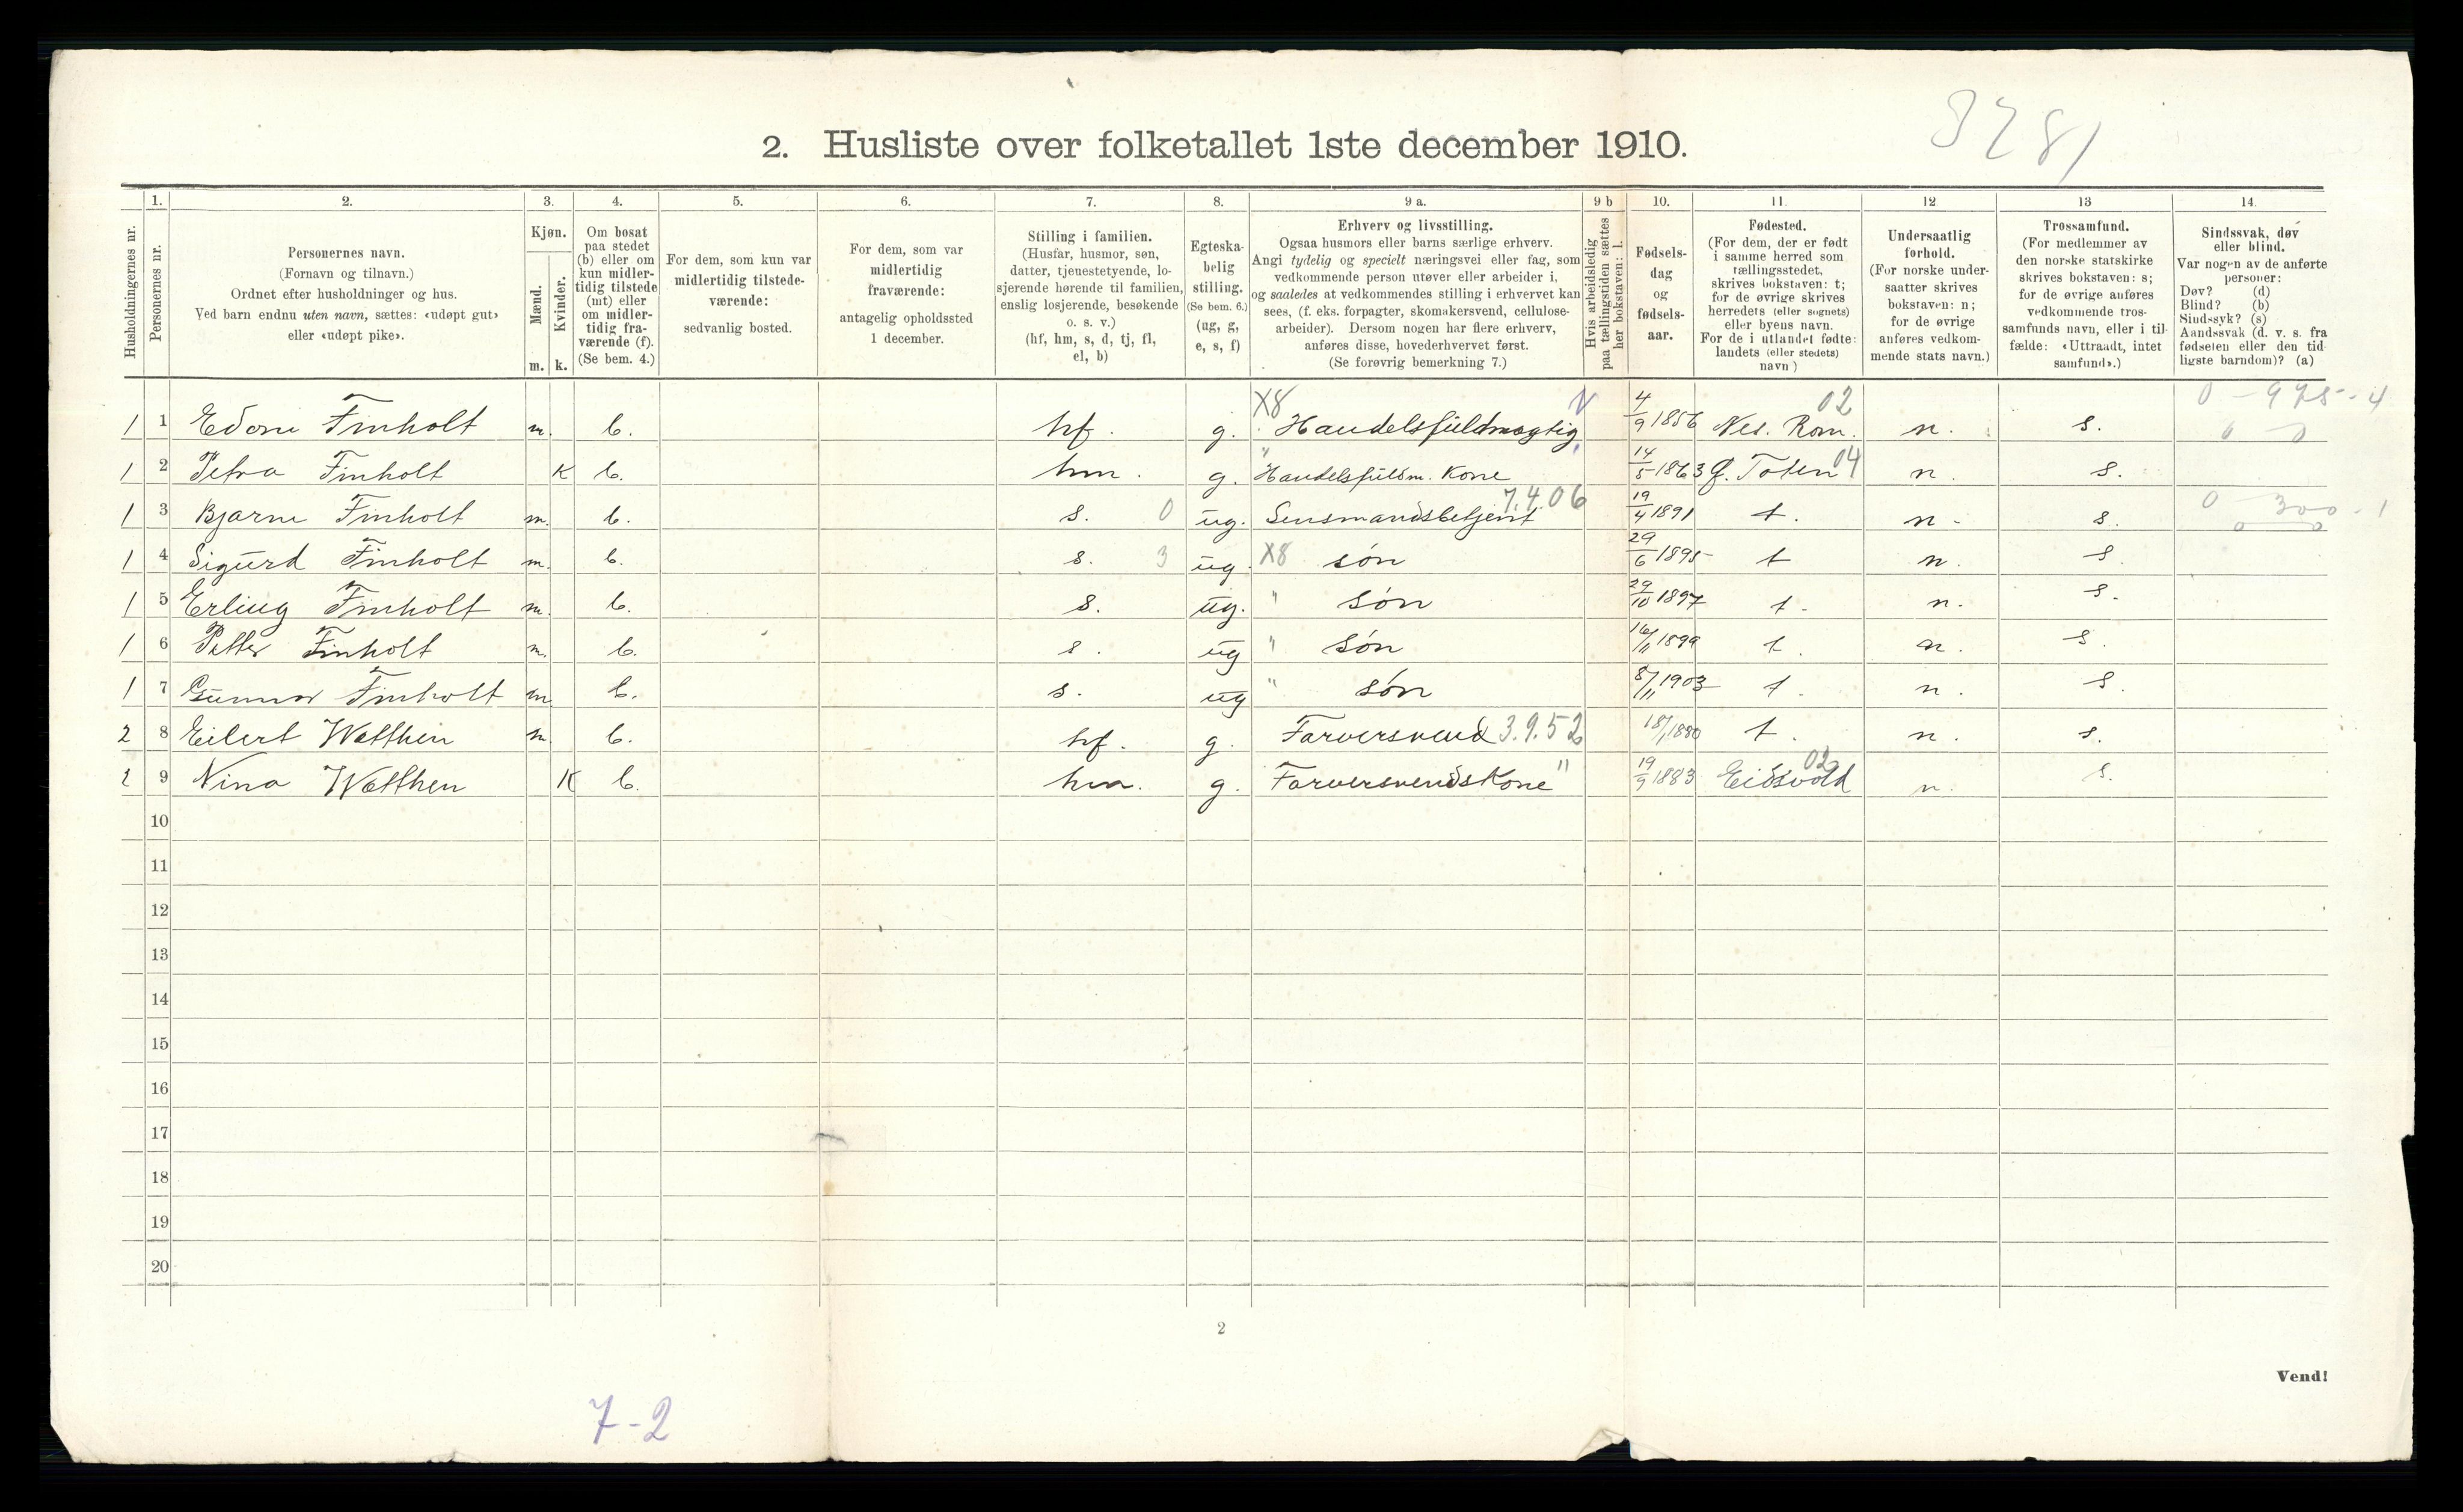 3281
2. Husliste over folketallet 1ste december 1910.
1. 2. 3. 4. 5. 6. 7. 8. 9 a. 9 b 10. 11. 12 13 14.
Husholdningernes nr.
Personernes nr.
Personernes navn.
(Fornavn og tilnavn.)
Ordnet efter husholdninger og hus.
Ved barn endnu uten navn, sættes: «udøpt gut»
eller «udøpt pike».
Kjøn.
Mænd.
Kvinder.
m. k.
Om bosat
paa stedet
(b) eller om
kun midler-
tidig tilstede
(mt) eller
om midler-
tidig fra-
værende (f).
(Se bem. 4.)
For dem, som kun var
midlertidig tilstede-
værende:
sedvanlig bosted.
For dem, som var
midlertidig
fraværende:
antagelig opholdssted
1 december.
Stilling i familien.
(Husfar, husmor, søn,
datter, tjenestetyende, lo-
sjerende hørende til familien,
enslig losjerende, besøkende
o. s. v.)
(hf, hm, s, d, tj, fl,
el, b)
Egteska-
belig
stilling.
(Se bem. 6.)
(ug, g,
e, s, f)
Erhverv og livsstilling.
Ogsaa husmors eller barns særlige erhverv.
Angi tydelig og specielt næringsvei eller fag, som
vedkommende person utøver eller arbeider i,
og saaledes at vedkommendes stilling i erhvervet kan
sees, (f. eks. forpagter, skomakersvend, cellulose-
arbeider). Dersom nogen har flere erhverv,
anføres disse, hovederhvervet først.
(Se forøvrig bemerkning 7.)
Hvis arbeidsledig
paa tællingstiden sættes
her bokstaven: l.
Fødsels-
dag
og
fødsels-
aar.
Fødested.
(For dem, der er født
i samme herred som
tællingsstedet,
skrives bokstaven: t;
for de øvrige skrives
herredets (eller sognets)
eller byens navn.
For de i utlandet fødte:
landets (eller stedets)
navn)
Undersaatlig
forhold.
(For norske under-
saatter skrives
bokstaven: n;
for de øvrige
anføres vedkom-
mende stats navn.)
Trossamfund.
(For medlemmer av
den norske statskirke
skrives bokstaven: s;
for de øvrige anføres
vedkommende tros-
samfunds navn, eller i til-
fælde: «Uttraadt, intet
samfund».)
Sindssvak, døv
eller blind.
Var nogen av de anførte
personer:
Døv? (d)
Blind? (b)
Sindssyk? (s)
Aandssvak (d. v. s. fra
fødselen eller den tid-
ligste barndom)? (a)
X8 02 0 - 975 - 4
1 1 Edone Finholt m. b. hf. g. Handelsfuldmægtig 4/9 1856 Nes. Rom. n. s.
1 2 Petra Finholt K b. hm. g. Handelsfuldm. Kone 14/5 1863 Ø. Toten 04 n. s.
1 3 Bjarne Finholt m. b. s. 0 ug. Lensmandsbetjent 7.4.06 19/4 1891 t. n. s. 0 300 - 1
1 4 Sigurd Finholt m. b. s. 3 ug. X8 søn 29/6 1895 t n. s
1 5 Erling Finholt m. b. s. ug. " søn 29/10 1897 t. n. s.
1 6 Petter Finholt m. b. s. ug " søn 16/11 1899 t. n. s.
1 7 Gunnar Finholt m b. s. ug " søn 8/11 1903 t. n. s.
2 8 Eilert Wetthen m. b. hf. g. Farversvend 3.9.52 18/1 1880 t. n. s.
2 9 Nina Wetthen K b. hm. g. Farversvendskone " 19/9 1883 Eidsvold 02 n. s.
10
11
12
13
14
15
16
17
18
19
20
2
Vend!
7-2